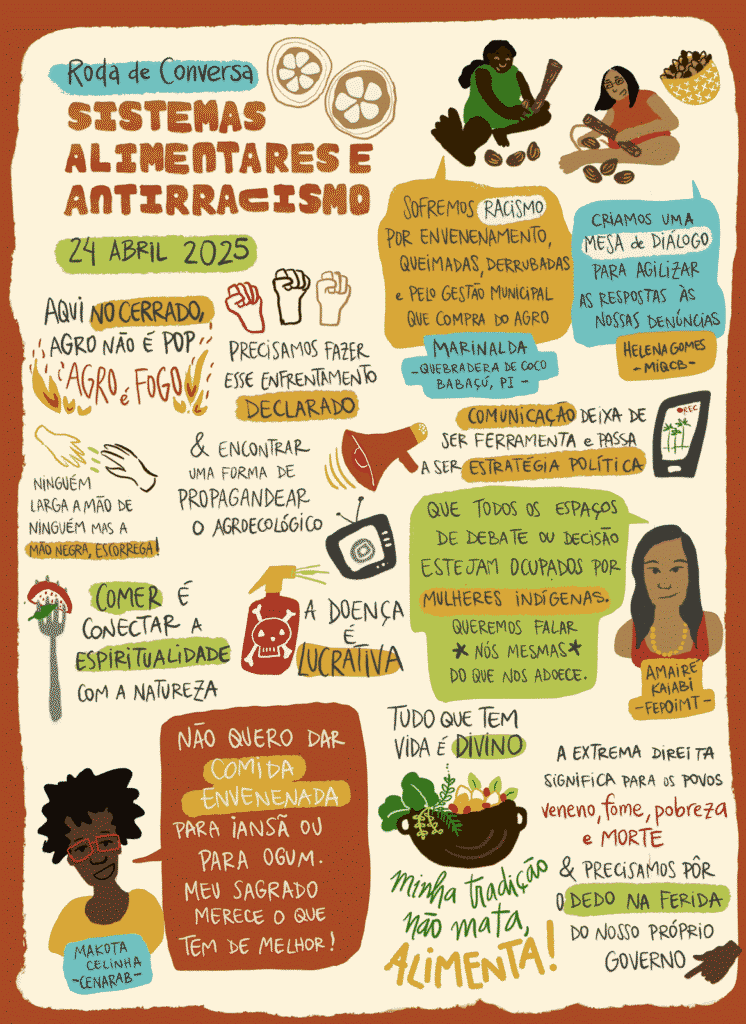 Roda de Conversa
SISTEMAS
ALIMENTARES E
ANTIRRACISMO
24 ABRIL 2025
SOFREMOS RACISMO
POR ENVENENAMENTO,
QUEIMADAS, DERRUBADAS
e PELO GESTÃO MUNICIPAL
QUE COMPRA DO AGRO
MARINALDA
- QUEBRADEIRA DE COCO
BABAÇÚ, PI -
CRIAMOS UMA
MESA de DIÁLOGO
PARA AGILIZAR
AS RESPOSTAS ÀS
NOSSAS DENÚNCIAS
HELENA GOMES
- MIQCB -
AQUI NO CERRADO,
AGRO NÃO É POP
AGRO é FOGO
PRECISAMOS FAZER
ESSE ENFRENTAMENTO
DECLARADO
& ENCONTRAR
UMA FORMA DE
PROPAGANDEAR
O AGROECOLÓGICO
COMUNICAÇÃO DEIXA DE
SER FERRAMENTA e PASSA
A SER ESTRATÉGIA POLÍTICA
REC
NINGUÉM
LARGA A MÃO DE
NINGUÉM MAS A
MÃO NEGRA, ESCORREGA!
QUE TODOS OS ESPAÇOS
DE DEBATE OU DECISÃO
ESTEJAM OCUPADOS POR
MULHERES INDÍGENAS.
QUEREMOS FALAR
* NÓS MESMAS *
DO QUE NOS ADOECE.
AMAIRÉ
KAIABI
- FEPOIMT -
COMER É
CONECTAR A
ESPIRITUALIDADE
COM A NATUREZA
A DOENÇA
É
LUCRATIVA
NÃO QUERO DAR
COMIDA
ENVENENADA
PARA IANSÃ OU
PARA OGUM.
MEU SAGRADO
MERECE O QUE
TEM DE MELHOR!
MAKOTA
CELINHA
- CENARAB -
TUDO QUE TEM
VIDA É DIVINO
minha tradição
não mata,
ALIMENTA!
A EXTREMA DIREITA
SIGNIFICA PARA OS POVOS
veneno, fome, pobreza
e MORTE
& PRECISAMOS PÔR
O DEDO NA FERIDA
DO NOSSO PRÓPRIO
GOVERNO